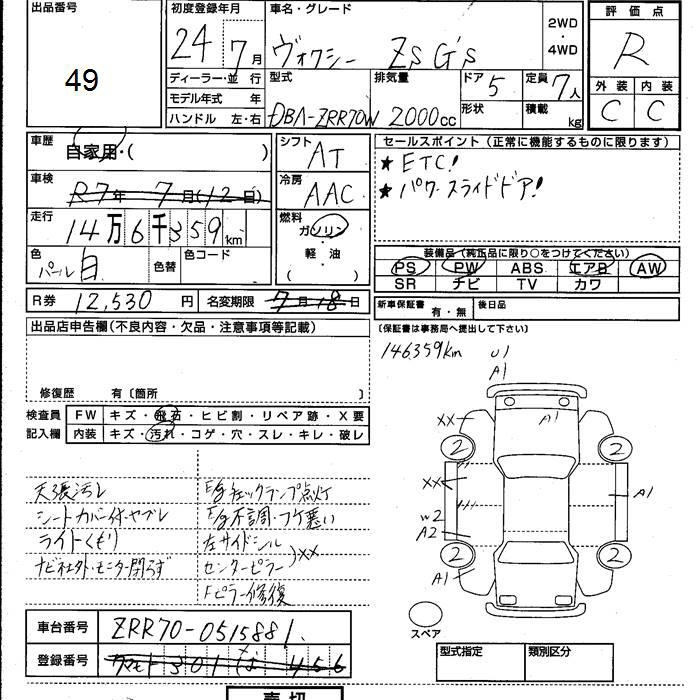 出品番号
49
初度登録年月
24年 7月
ディーラー・並行
モデル年式 年
ハンドル 左・右
車名・グレード
ヴォクシー ZS G's
2WD
・
4WD
型式
DBA-ZRR70W
排気量
2000cc
ドア
5
形状
定員
7人
積載
kg
評価点
R
外装 内装
C C
車歴
自家用・( )
車検
R7年 7月(12日)
走行
14万6千359km
色
パール白
色替
色コード
シフト
AT
冷房
AAC
燃料
ガソリン
・
軽油
( )
セールスポイント (正常に機能するものに限ります)
★ETC!
★パワースライドドア!
装備品(純正品に限り○をつけてください)
PS PW ABS エアB AW
SR ナビ TV カワ
R券 12,530 円
名変期限 7月18日
新車保証書 有・無
後日品
(保証書は事務局へ提出して下さい)
出品店申告欄(不良内容・欠品・注意事項等記載)
修復歴 有〔箇所 〕
検査員
記入欄
FW キズ・飛石・ヒビ割・リペア跡・X要
内装 キズ・汚れ・コゲ・穴・スレ・キレ・破レ
天張汚レ
シートカバー付・ヤブレ
ライトくもり
ナビ社外・モニター閉らず
E/gチェックランプ点灯
E/g不調・フケ悪い
左サイドシル
センターピラー)XX
Fピラー修復
146359km
U1
A1
A1
XX
2
2
XX
A1
W2
A2
2
2
A1
スペア
車台番号 ZRR70-0515881
登録番号
301
456
型式指定
類別区分
売切